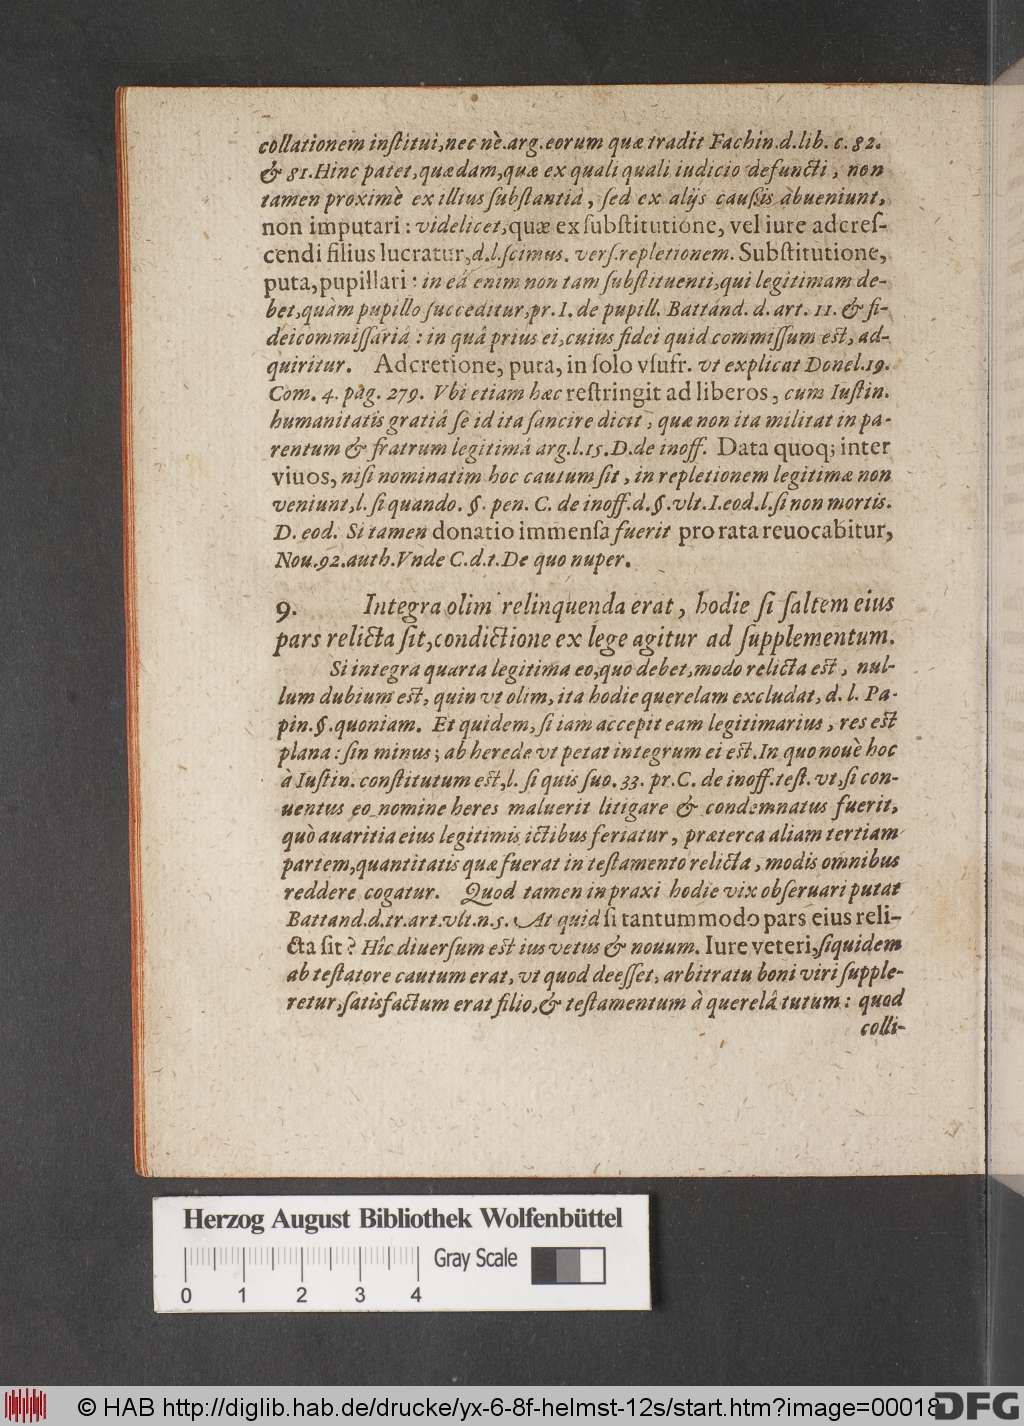 collationem inſtitui,nec nè.arg.eorum quæ tradit Fachin.d.lib. c. 82.
& 81.Hinc patet,quædam,quæ ex quali quali iudicio defuncti, non
tamen proximè ex illius ſubſtantiâ, ſed ex alijs cauſſis abueniunt,
non imputari: videlicet,quæ ex ſubſtitutione, vel iure adcreſ-
cendi filius lucratur,d.l.ſcimus. verſ.repletionem. Subſtitutione,
puta,pupillari: in eâ enim non tam ſubſtituenti,qui legitimam de-
bet,quàm pupillo ſucceditur,pr.I. de pupill. Battand. d. art. 11. & fi-
deicommiſſariâ: in quâ prius ei,cuius fidei quid commiſſum est, ad-
quiritur. Adcretione, puta, in ſolo vſufr. vt explicat Donel.19.
Com. 4. pag. 279. Vbi etiam hæc reſtringit ad liberos, cum Iuſtin.
humanitatis gratiâ ſe id ita ſancire dicit, quæ non ita militat in pa-
rentum & fratrum legitimâ arg.l.15.D.de inoff. Data quoq; inter
viuos, niſi nominatim hoc cautum ſit, in repletionem legitimæ non
veniunt,l. ſi quando. §. pen. C. de inoff.d.§.vlt.I.eod.l.ſi non mortis.
D. eod. Si tamen donatio immenſa fuerit pro rata reuocabitur,
Nou.92.auth.Vnde C.d.t.De quo nuper.
9. Integra olim relinquenda erat, hodie ſi ſaltem eius
pars relicta ſit,condictione ex lege agitur ad ſupplementum.
Si integra quarta legitima eo,quo debet,modo relicta est, nul-
lum dubium est, quin vt olim, ita hodie querelam excludat, d. l. Pa-
pin.§.quoniam. Et quidem, ſi iam accepit eam legitimarius, res est
plana: ſin minus; ab herede vt petat integrum ei est.In quo nouè hoc
à Iuſtin. conſtitutum est,l. ſi quis ſuo. 33. pr.C. de inoff.teſt. vt,ſi con-
uentus eo nomine heres maluerit litigare & condemnatus fuerit,
quò auaritia eius legitimis ictibus feriatur, præterca aliam tertiam
partem,quantitatis quæ fuerat in teſtamento relicta, modis omnibus
reddere cogatur. Quod tamen in praxi hodie vix obſeruari putat
Battand.d.tr.art.vlt.n.5. At quid ſi tantummodo pars eius reli-
cta ſit? Hîc diuerſum est ius vetus & nouum. Iure veteri,ſiquidem
ab teſtatore cautum erat, vt quod deeſſet, arbitratu boni viri ſupple-
retur,ſatisfactum erat filio,& teſtamentum à querelâ tutum: quod
colli-
Herzog August Bibliothek Wolfenbüttel
Gray Scale
0 1 2 3 4
© HAB http://diglib.hab.de/drucke/yx-6-8f-helmst-12s/start.htm?image=00018
DFG